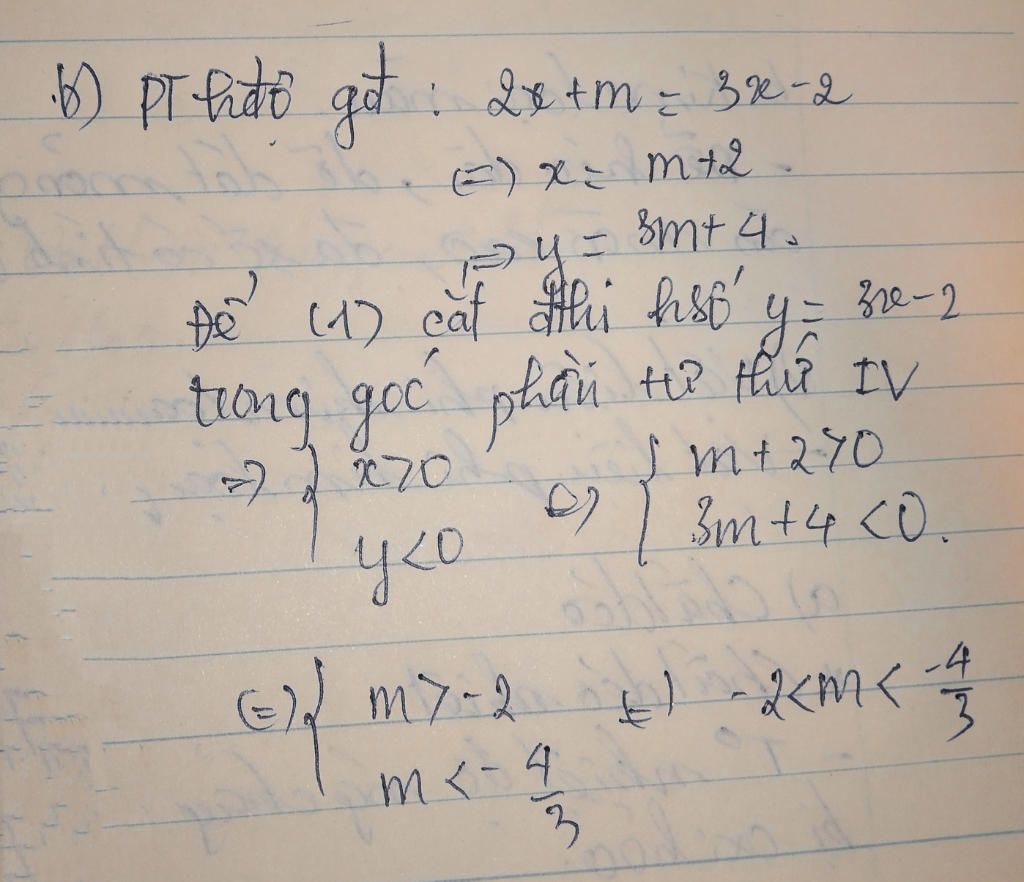 b) PT hđộ gđ : 2x + m = 3x - 2
(=) x = m + 2 .
=> y = 3m + 4 .
Để (1) cắt đthị hsố y = 3x - 2
trong góc phần tư thứ IV
=> { x > 0 (=) { m + 2 > 0
y < 0 3m + 4 < 0 .
(=) { m > -2 (=) -2 < m < -4/3
m < -4/3